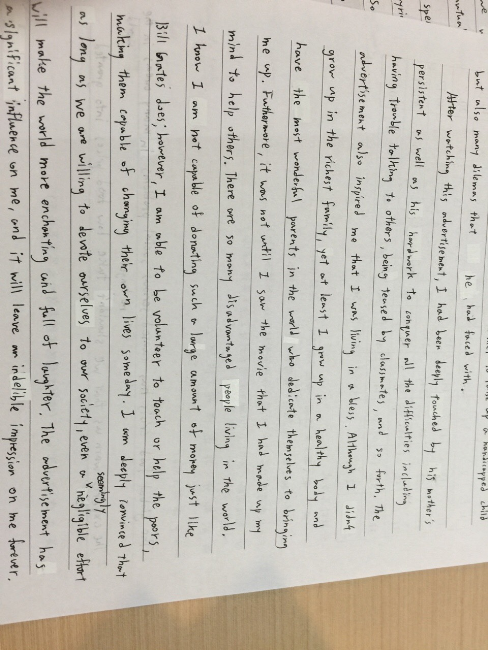 a handicapped child
but also many dilemas that he had faced with.
After watching this advertisement, I had been deeply touched by his mother's
persistent as well as his hardwork to conquer all the difficulties including
having trouble talking to others, being teased by classmates, and so forth. The
advertisement also inspired me that I was living in a bless. Although I didn't
grow up in the richest family, yet at least I grow up in a healthy body and
have the most wonderful parents in the world who dedicate themselves to bringing
me up. Futhermore, it was not until I saw the movie that I had made up my
mind to help others. There are so many disadvantaged people living in the world.
I know I am not capable of donating such a large amount of money just like
Bill Gates does; however, I am able to be volunteer to teach or help the poors,
making them capable of changing their own lives someday. I am deeply convinced that
seemingly
as long as we are willing to devote ourselves to our society, even a negligible effort
will make the world more enchanting and full of laughter. The advertisement has
a significant influence on me, and it will leave an indelible impression on me forever.